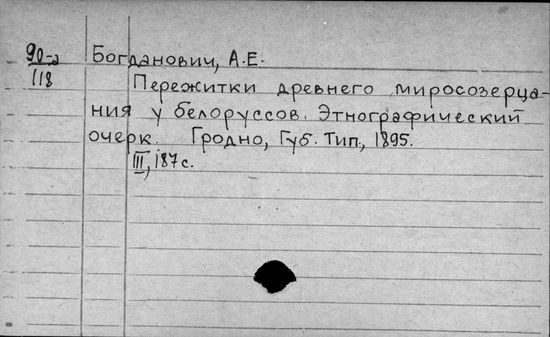 90-а Богданович, А.Е.
118 Пережитки древнего миросозерца-
ния у белоруссов. Этнографический
очерк. Гродно, Губ. Тип., 1895.
III, 187 с.